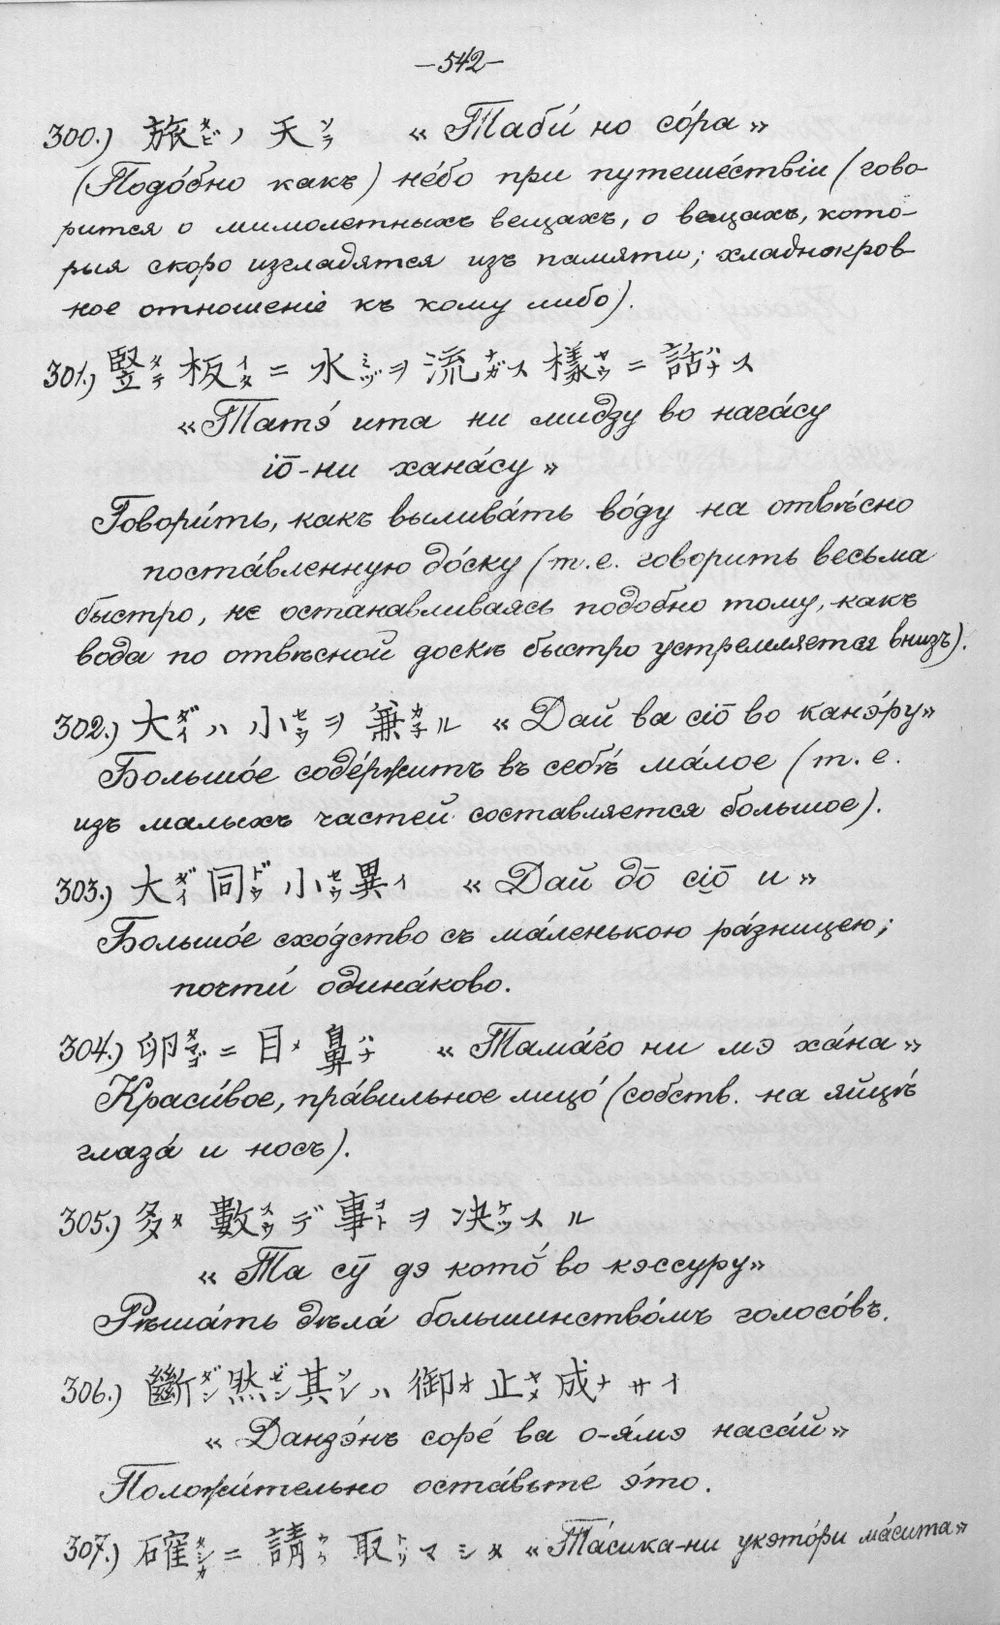 —542—
300.) 旅タビノ 天ソラ « Таби́ но со́ра »
(Подо́бно какъ) не́бо при путеше́ствіи (гово-
рится о мимолетныхъ вещахъ, о вещахъ, кото-
рыя скоро изгладятся изъ памяти; хладнокров-
ное отношеніе къ кому либо).
301.) 竪タテ板イタニ水ミヅヲ流ナガス樣ヤウニ話ハナス
«Татэ́ ита ни мидзу во нага́су
іо̄-ни хана́су»
Говори́ть, какъ вылива́ть во́ду на отвѣ́сно
поста́вленную до́ску (т.е. говорить весьма
быстро, не останавливаясь подобно тому, какъ
вода по отвѣсной доскѣ быстро устремляется внизъ).
302.) 大ダイハ小セウヲ兼カネル « Дай ва сіо̄ во канэ́ру»
Большо́е соде́ржитъ въ себѣ́ ма́лое (т. е.
изъ малыхъ частей составляется большое).
303.) 大ダイ同ドウ小セウ異イ « Дай до̄ сіо̄ и »
Большо́е схо́дство съ ма́ленькою ра́зницею;
почти́ одина́ково.
304.) 卵タマゴニ目メ鼻ハナ « Тама́го ни мэ ха́на »
Краси́вое, пра́вильное лицо́ (собств. на яйцѣ́
глаза́ и носъ).
305.) 多タ數スウデ事コトヲ决ケッスル
« Та сӯ дэ кото́ во кэссуру»
Рѣша́ть дѣла́ большинство́мъ голосо́въ.
306.) 斷ダン然ゼン其ソレハ御オ止ヤメ成ナサイ
« Дандзэ́нъ соре́ ва о-я́мэ наса́й»
Положи́тельно оста́вьте э́то.
307.) 確タシカニ請ウケ取トリマシタ «Та́сика-ни укэто́ри ма́сита»